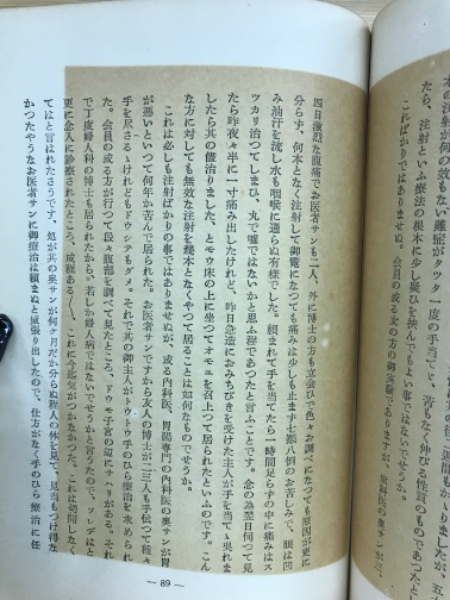 本の注射が何の効もない難症がタッタ一度の手当てゞ、苦もなく伸びる性質のものであつたとし
たら、注射といふ療法の根本に少し疑ひを挟んでもよい事ではないでせうか。
こればかりではありませぬ。会員の或る女の方の御実験でありますが、歯科医の奥サンが三、
四日激烈な腹痛でお医者サンも二人、外に博士の方も立会ひで色々お調べになつても原因が更に
分らず、何本となく注射して御覧になつても痛みは少しも止まず七顛八倒のお苦しみで、眼は凹
み油汗を流し水も咽喉に通らぬ有様でした。頼まれて手を当てたら一時間足らずの中に痛みはス
ツカリ治つてしまひ、丸で嘘ではないかと思ふ程であつたと言ふことです。念の為翌日伺つて見
たら昨夜々半に一寸痛み出したけれど、昨日急造におみちびきを受けた主人が手を当てゝ呉れま
したら其の儘治りました、とモウ床の上に坐つてオモユを召上つて居られたといふのです。こん
な方に対しても無効な注射を幾本となくやつて居ることは如何なものでせうか。
これは必しも注射ばかりの事ではありませぬが、或る内科医、胃腸専門の内科医の奥サンが胃
が悪いといつて何年か苦んで居られた。お医者サンですから友人の博士が二三人も手伝つて種々
手を尽さるゝけれどもドウシテもダメ。それで其の御主人がトウトウ手のひら療治を求められ
た。会員の或る方が行つて段々腹部を調べて見たところ、ドウモ子宮の辺にサハリがある。それ
で丁度婦人科の博士も居られたから、若しか婦人病ではないでせうかと言うたので、ソレデはと
更に念入に診察されたところ、成程ある――、これに今迄気がつかなかつた。これは切開しなく
てはと言はれたさうです。処が其の奥サンが何ケ月だか分らぬ程人の休を見て、見当もつけ得な
かつたやうなお医者サンに御療治は頼まぬと威張り出したので、仕方がなく手のひら療治に任
— 89 —